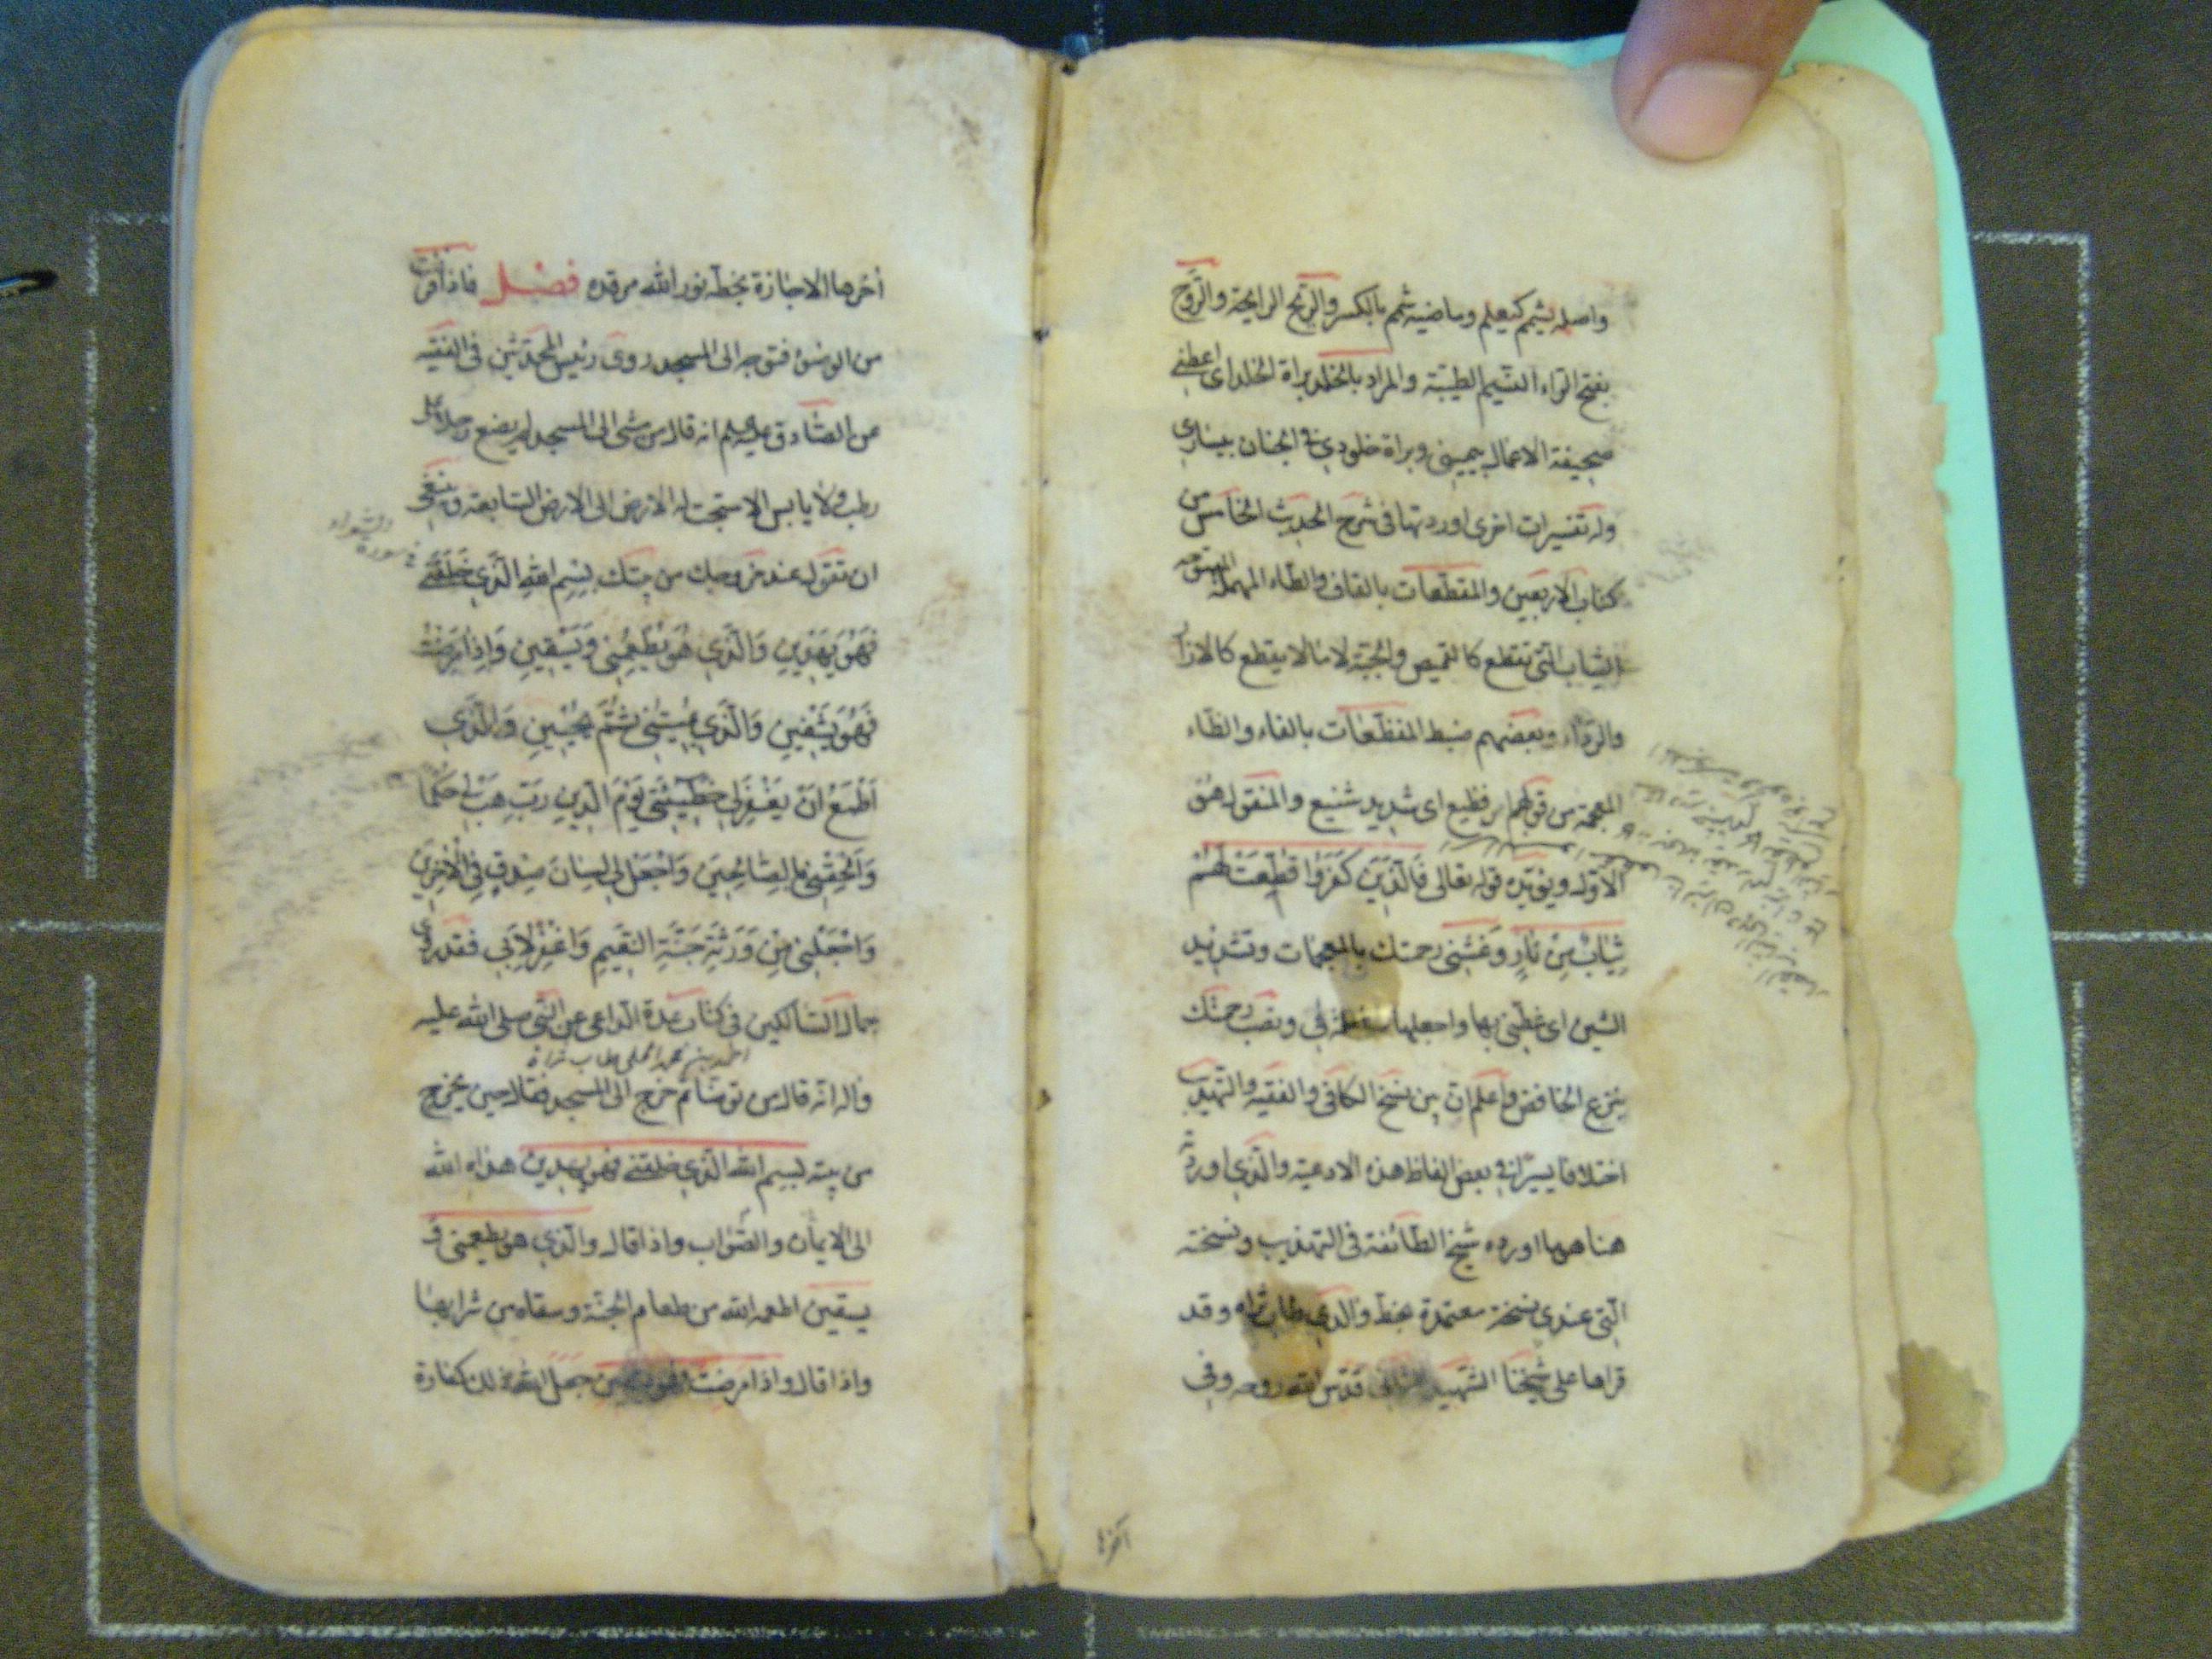 واصله يشمم كيعلم وماضيه شمم بالكسر والريح الرايحة والروح
بفتح الراء النسيم الطيبة والمراد بالخلد براة الخلد اى اعطنى
صحيفة الاعمال بيمينى وبراة خلودي فى الجنان بيسارى
وله تفسيرات اخرى اوردتها فى شرح الحديث الخامس من
كتاب الاربعين والمقطعات بالقاف والطاء المهملة
الثياب التى تقطع كالقميص والجبة لا ما لا يقطع كالازار
والرداء وبعضهم ضبط المفظعات بالفاء والظاء
المعجمة من قولهم امر فظيع اى شديد شنيع والمنقول هو
الاول ويؤيده قوله تعالى فَالَّذِينَ كَفَرُوا قُطِّعَتْ لَهُمْ
ثِيَابٌ مِنْ نَارٍ وغشنى رحمتك بالمعجمات وتشديد
الشين اى غطنى بها واجعلها شاملة لى ونصب رحمتك
بنزع الخافض واعلم ان بين نسخ الكافى والفقيه والتهذيب
اختلافا يسيرا فى بعض الفاظ هذه الادعية والذى اوردته
هنا هو ما اورده شيخ الطائفة فى التهذيب ونسخته
التى عندى نسخة معتمدة بخط والدي طاب ثراه وقد
قراها على شيخنا الشهيد الثانى قدس الله روحه وفى
اخرها
اخرها الاجازة بخطه نور الله مرقده فصل فاذا فرغت
من الوضوء فتوجه الى المسجد روى رئيس المحدثين فى الفقيه
عن الصادق عليه السلم انه قال من مشى الى المسجد لم يضع رجلا على
رطب ولا يابس الا سبحت له الارض الى الارض السابعة وينبغى
ان تقول عند خروجك من بيتك بِسْمِ اللهِ الَّذِي خَلَقَنِي
فَهُوَ يَهْدِينِ وَالَّذِي هُوَ يُطْعِمُنِي وَيَسْقِينِ وَإِذَا مَرِضْتُ
فَهُوَ يَشْفِينِ وَالَّذِي يُمِيتُنِي ثُمَّ يُحْيِينِ وَالَّذِي
أَطْمَعُ أَنْ يَغْفِرَ لِي خَطِيئَتِي يَوْمَ الدِّينِ رَبِّ هَبْ لِي حُكْمًا
وَأَلْحِقْنِي بِالصَّالِحِينَ وَاجْعَلْ لِي لِسَانَ صِدْقٍ فِي الْآخِرِينَ
وَاجْعَلْنِي مِنْ وَرَثَةِ جَنَّةِ النَّعِيمِ وَاغْفِرْ لِأَبِي فقد روى
جمال السالكين فى كتاب عدة الداعى عن النبى صلى الله عليه
احمد بن فهد الحلى طاب ثراه
واله انه قال من توضا ثم خرج الى المسجد فقال حين يخرج
من بيته بسم الله الذي خلقنى فهو يهدين هداه الله
الى الايمان والصواب واذا قال والذي هو يطعمنى و
يسقين اطعمه الله من طعام الجنة وسقاه من شرابها
واذا قال واذا مرضت فهو يشفين جعل الله ذلك كفارة